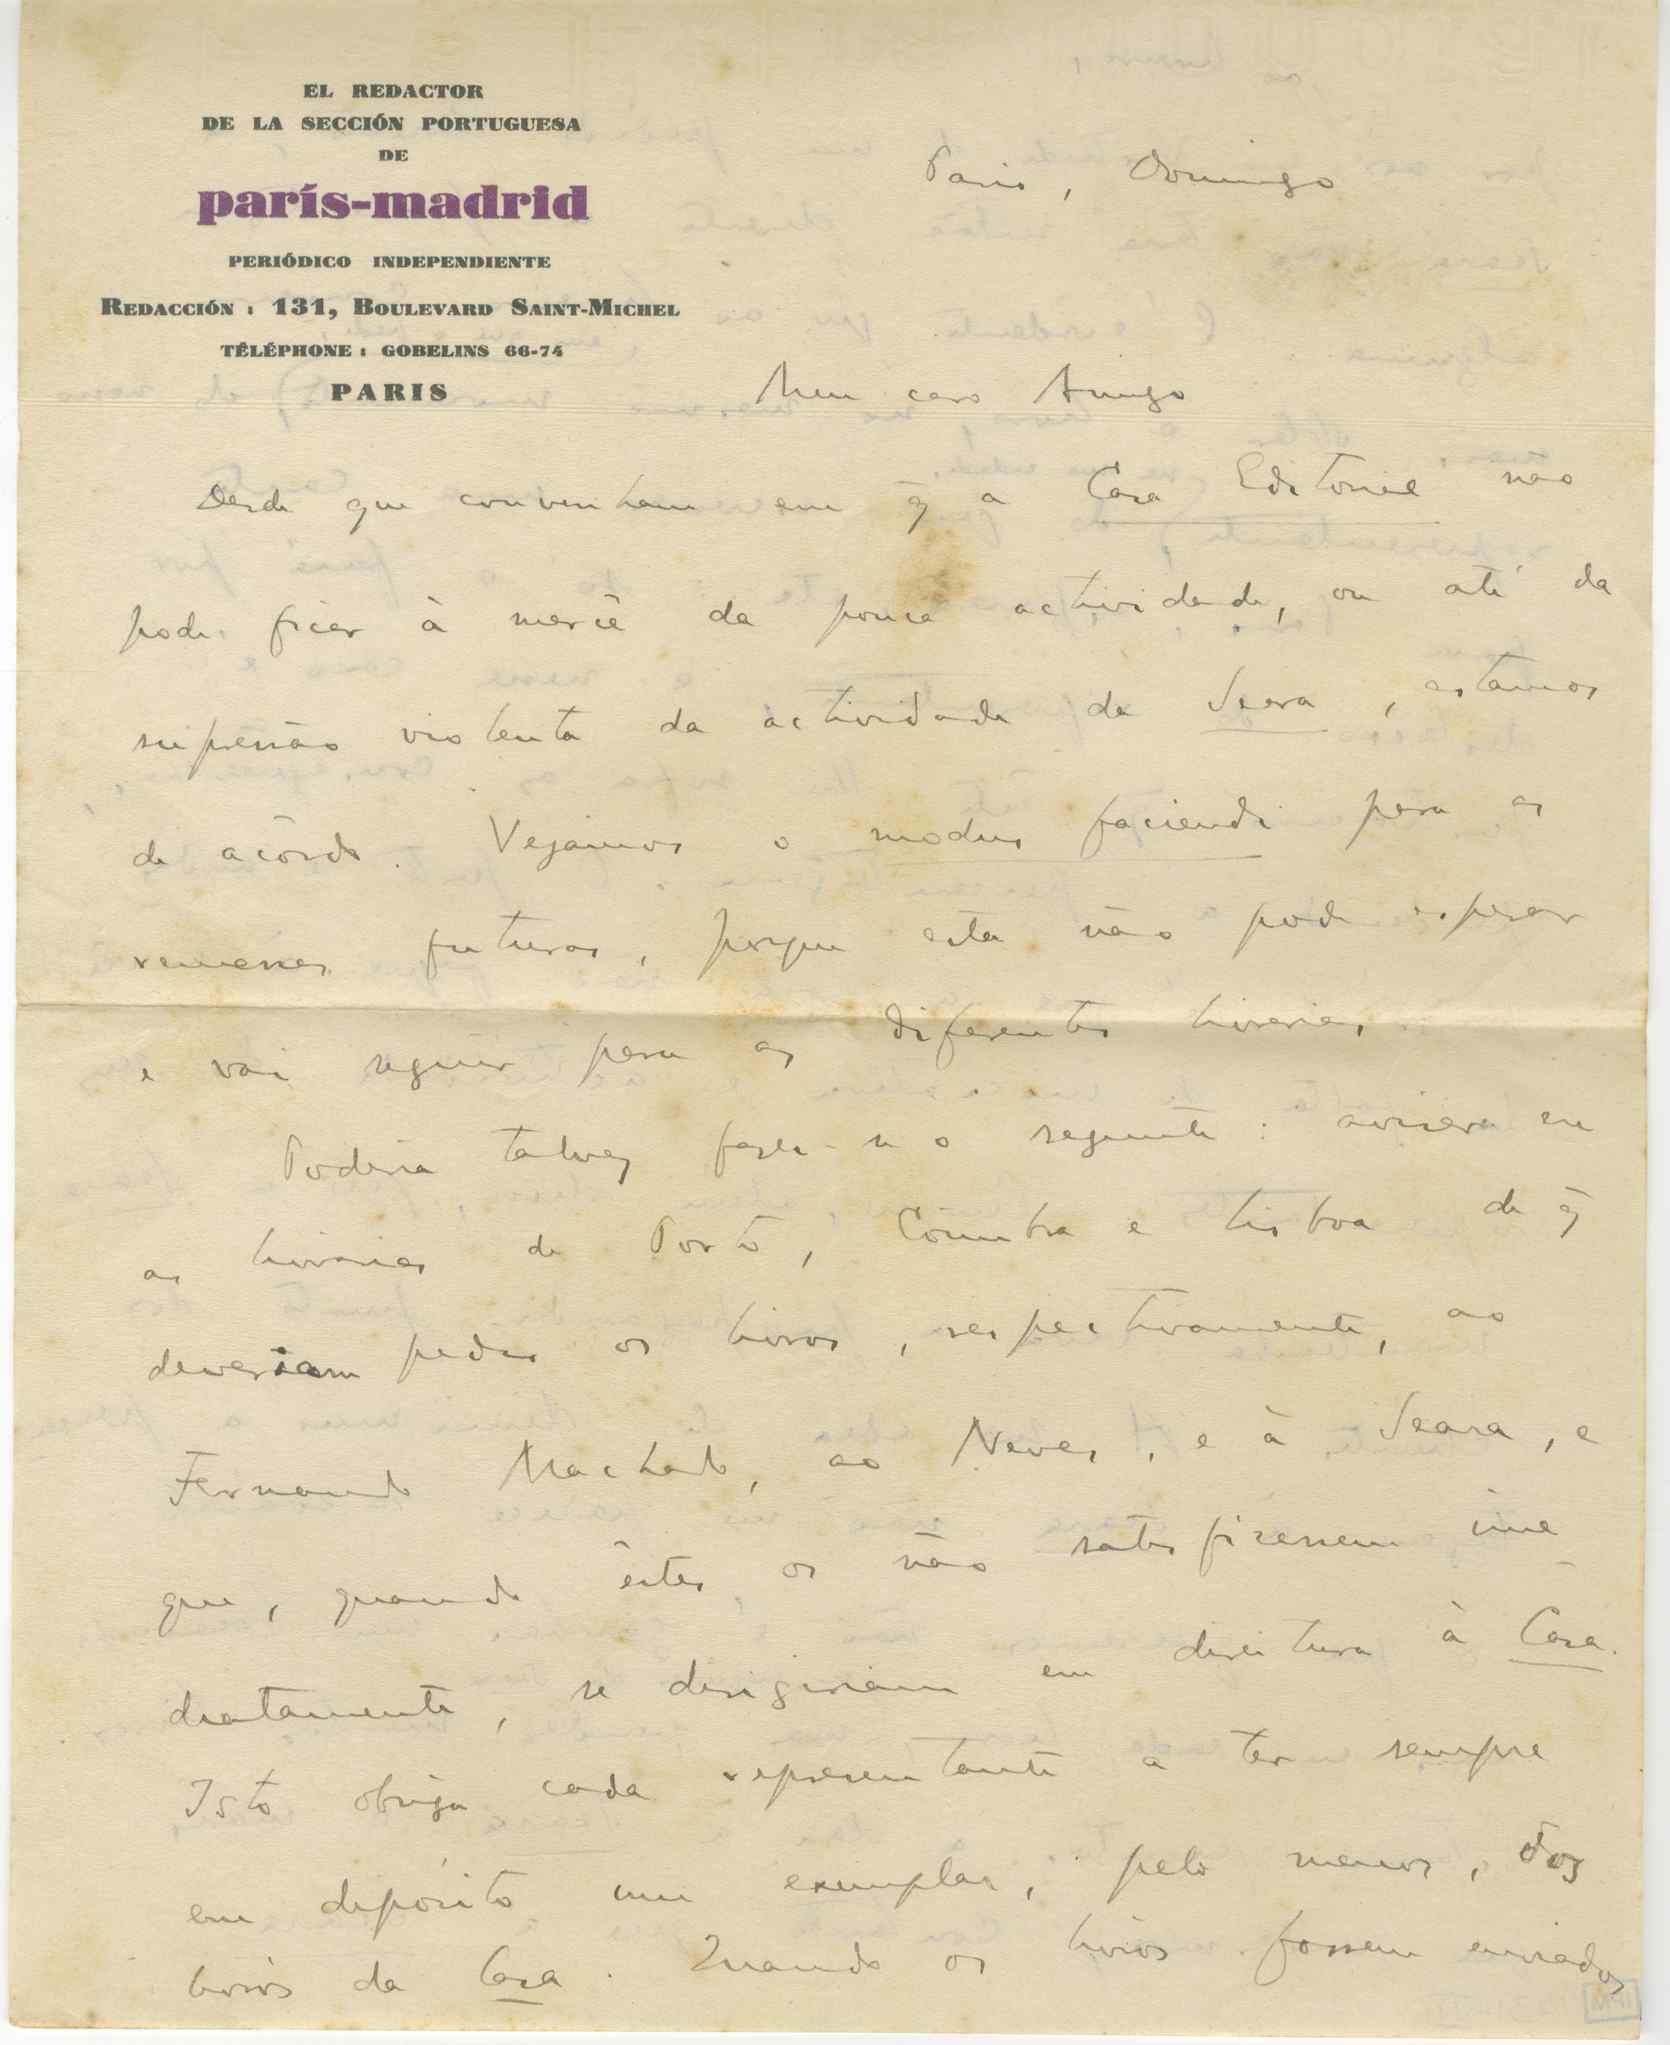 EL REDACTOR
DE LA SECCIÓN PORTUGUESA
DE
parís-madrid
PERIÓDICO INDEPENDIENTE
REDACCIÓN : 131, BOULEVARD SAINT-MICHEL
TÉLÉPHONE : GOBELINS 66-74
PARIS
Paris, Domingo
Meu caro Amigo
Desde que convenham em q̃ a Casa Editorial não
pode ficar à mercê da pouca actividade, ou até da
supressão violenta da actividade da Seara, estamos
de acôrdo. Vejamos o modus faciendi para as
remessas futuras, porque esta não pode esperar
e vai seguir para as diferentes livrarias.
Poderia talvez fazer-se o seguinte: avisara eu
as livrarias de Porto, Coimbra e Lisboa de q̃
deveriam pedir os livros, respectivamente, ao
Fernando Machado, ao Neves, e à Seara, e
que, quando êstes os não satisfizessem ime
diatamente, se dirigiriam em direitura à Casa.
Isto obriga cada representante a ter sempre
em depósito um exemplar, pelo menos, dos
livros da Casa. Quando os livros fossem enviados